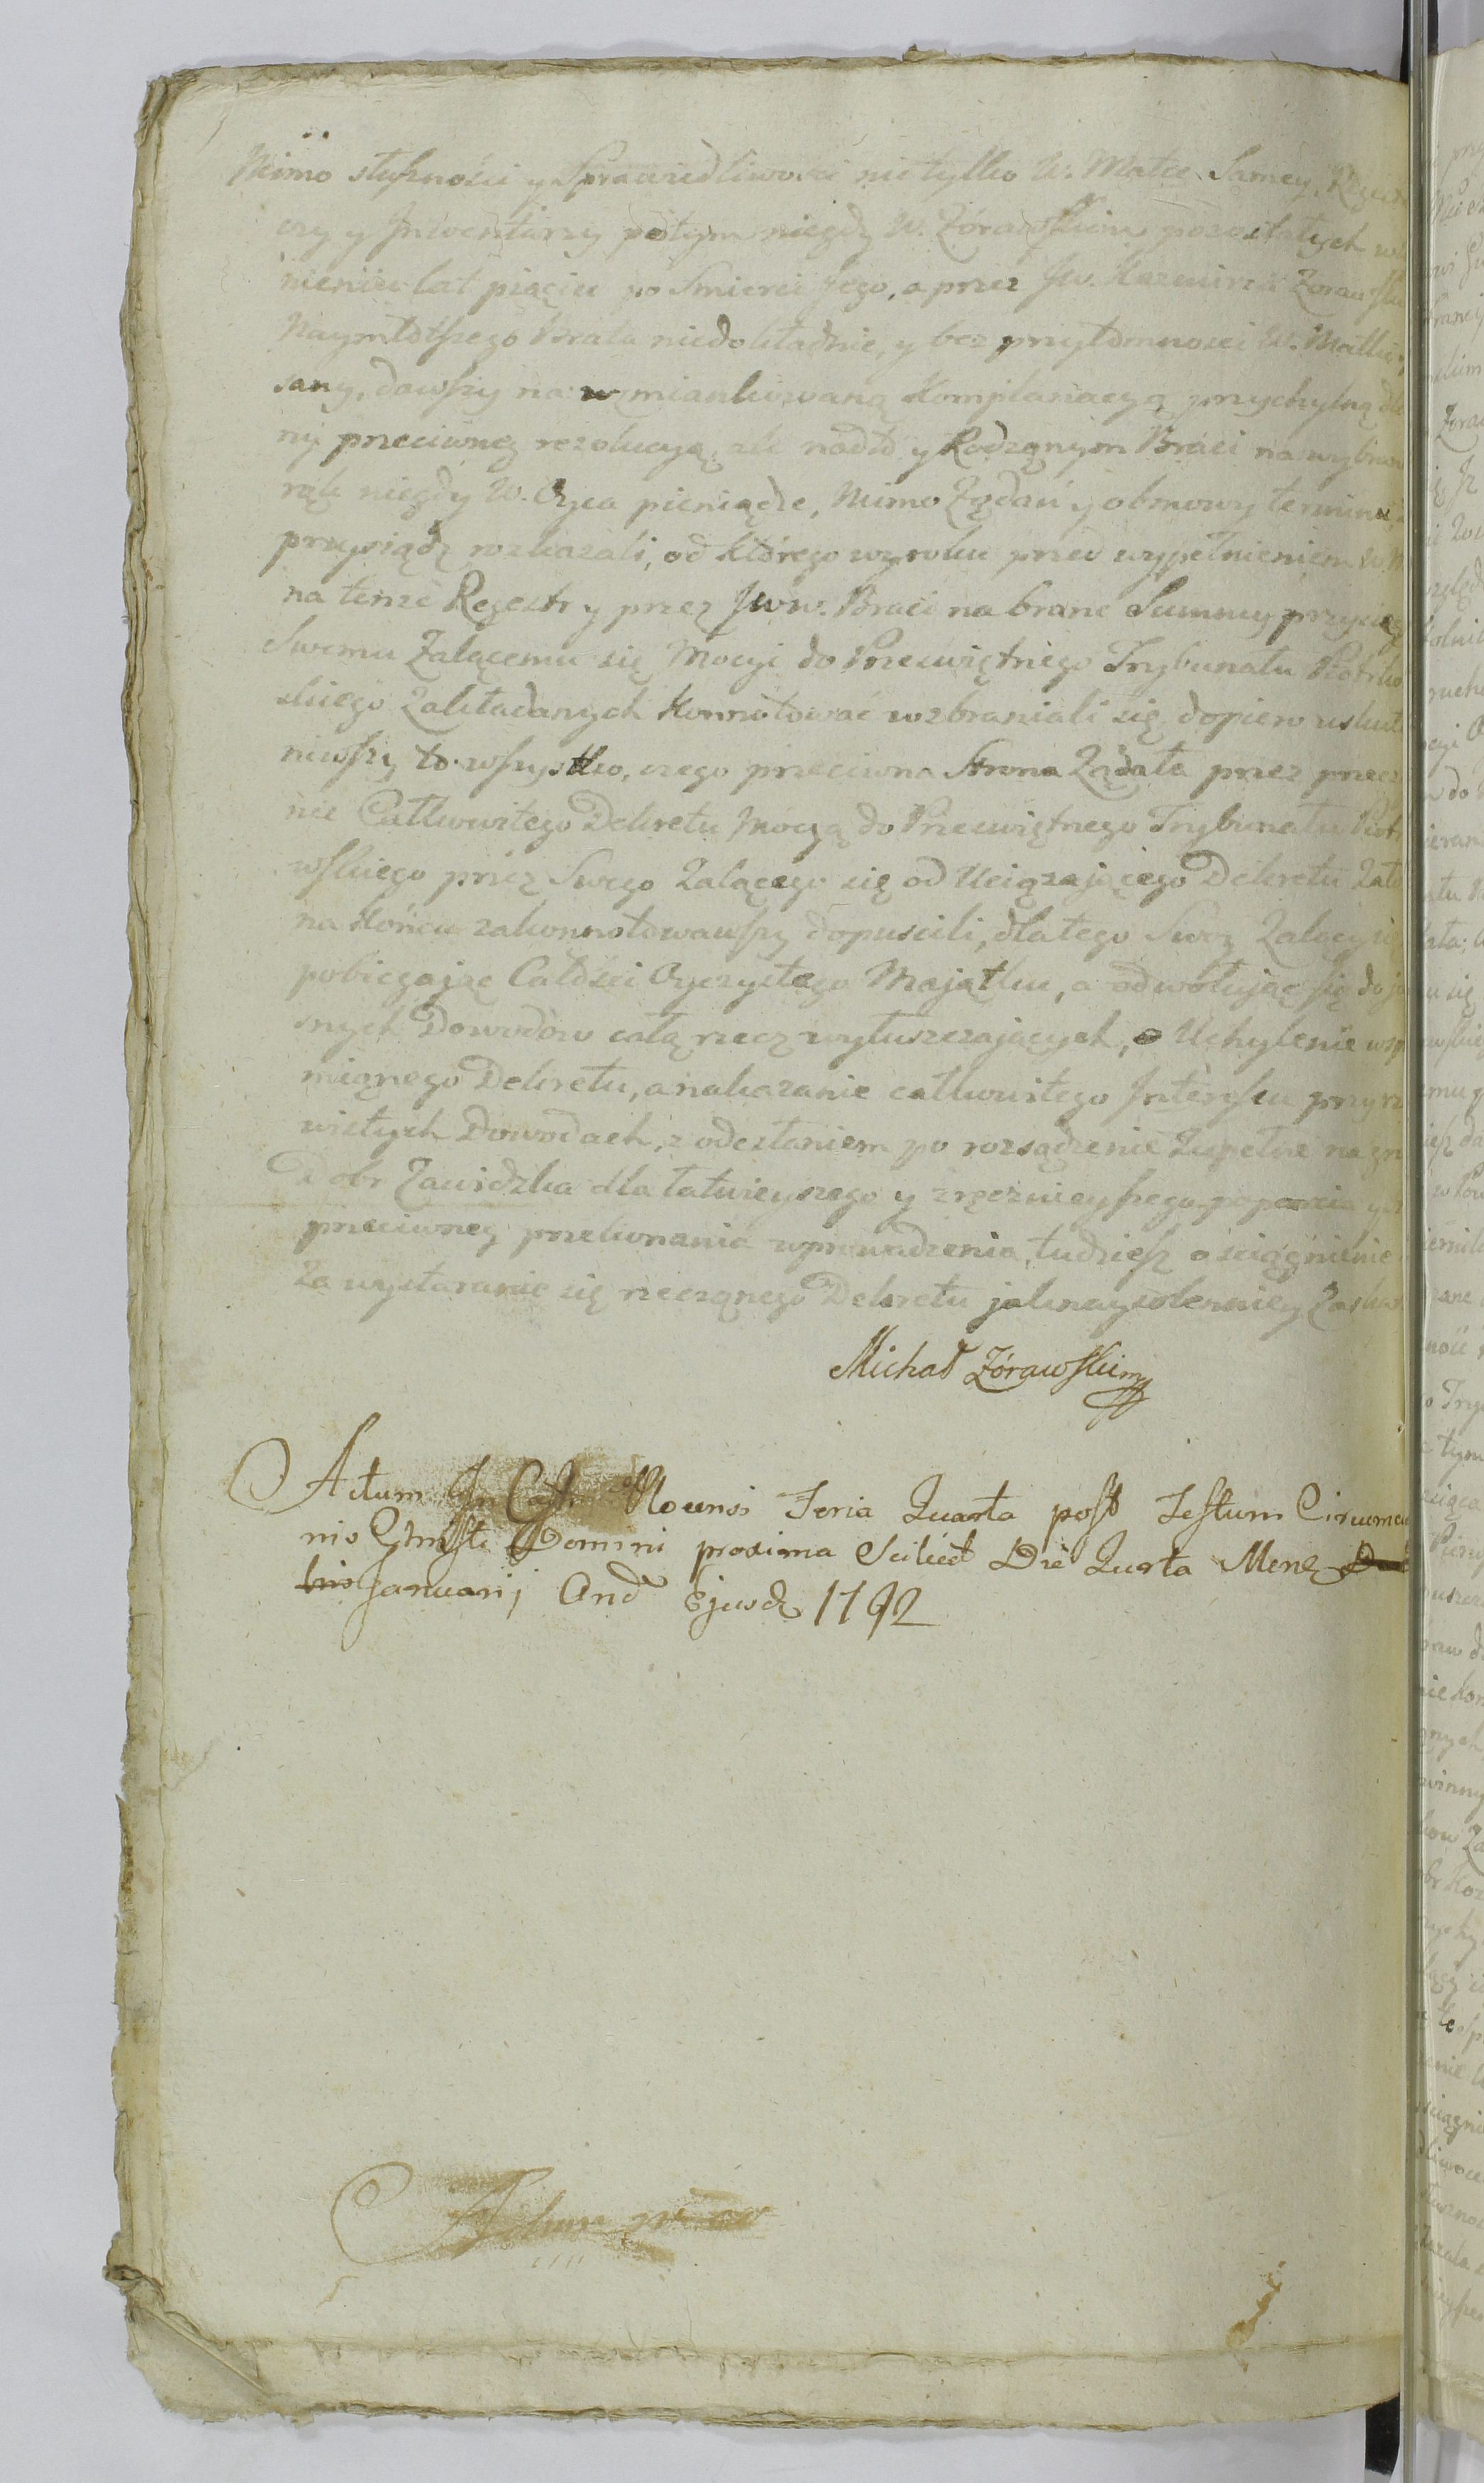 Mimo słuszności y Sprawiedliwości nietylko W. Matce Samey
czy y Inwentarzy potym niegdy W. Zórawskim pozostałych
nieniu lat pięciu po Smierci Jego, a przez Jw. Kazmirza Zoraw
Naymłotszego Brata niedokładnie, y bez przytomności W. Matki
sany, dawszy na wzmiankowaną Komplanacyą przychylną
ny przeciwney rezolucyą, ale nadto y Rodzonym Braci na wybran
rąk niegdy W. Oyca pieniądze, Mimo Żądań y obmowy terminu
przysiądz rozkazali, od którego wyroku przed wypełnieniem
na tenże Regestr y przez Jww. Braci na brane Summy przysieg
Swemu Zalącemu się Mocyi do Przeświętnego Trybunału Piotrko
skiego Zakładanych Konnotować wzbraniali się, dopiero uskut
niwszy to wszystko, czego przeciwna Strona Żądała przez przecz
nie Całkowitego Dekretu Mocyą do Przeświętnego Trybunału Piotr
wskiego przez Swego Zalącego się od Uciązającego Dekretu Zało
na Końcu zakonnotowawszy dopuscili, dlatego Swoy Zalący
pobiegając Całości Oyczystego Majątku, a odwołując się do ja
snych Dowodów całą rzecz wyłuszczających, o Uchylenie wsp
mionego Dekretu, a nakazanie całkowitego Interessu przy rz
wistych Dowodach, z odesłaniem po rozsądzenie Zupełne na gr
Dobr Zawidzka dla łatwieyszego y zręcznieyszego poparcia
przeciwney przekonania wprowadzenia, tudziesz o sciągnienie
Za wystaranie się rzeczonego Dekretu jaknaysolenniey Zaskar
Michał Zórawski mp
Actum In Cast Plocensi Feria Quarta post Festum Circumci
nis Christi Domini proxima Scilicet Die Quarta Mens
Januarij And Ejusd 1792
Actum